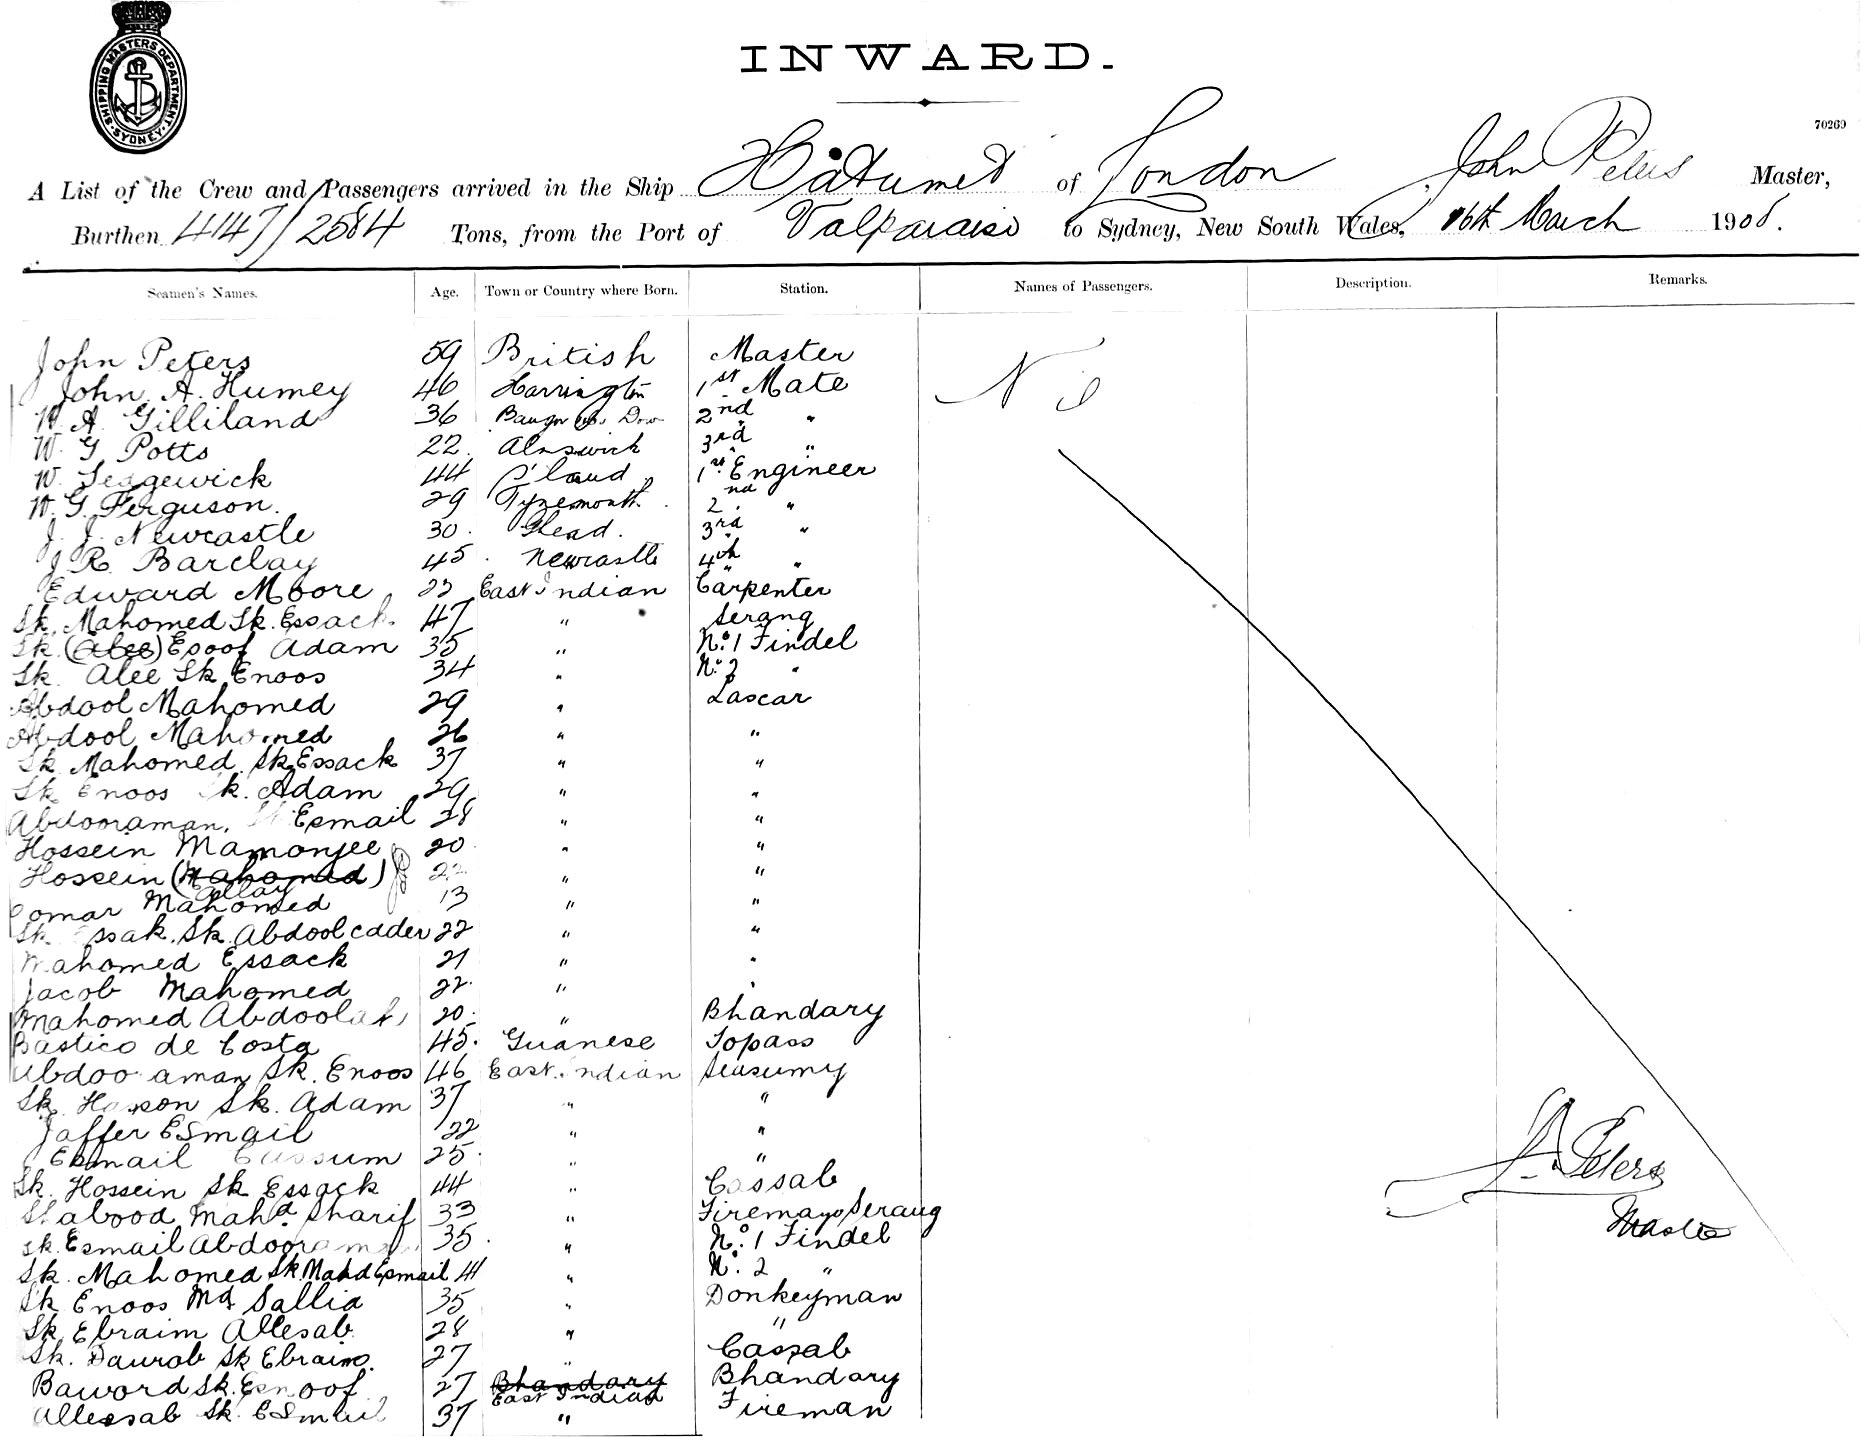 SHIPPING MASTERS DEPARTMENT. SYDNEY
INWARD.
70269
A List of the Crew and Passengers arrived in the Ship Hatumet of London John Peters Master,
Burthen 4147/2584 Tons, from the Port of Valparaiso to Sydney, New South Wales, 16th March 1908.
Seamen's Names. Age. Town or Country where Born. Station. Names of Passengers. Description. Remarks.
John Peters 59 British Master
John A. Humey 46 Harrington 1st Mate Nil
W. A. Gilliland 36 2nd "
W. G Potts 22. Alnswick 3rd "
W. Sedgewick 44 S'land 1st Engineer
W. G. Ferguson. 29 Tynemouth. 2nd "
J. J. Newcastle 30. Ghead. 3rd "
J R. Barclay 45. Newcastle 4th "
Edward Moore 22 East Indian Carpenter
Sk. Mahomed Sk. Essack 47 " Serang
Sk. (Alee) Esoof Adam 35 " No. 1 Tindel
Sk. Alee Sk Enoos 34 " No. 2 "
Abdool Mahomed 29 " Lascar
Abdool Mahomed 26 " "
Sk Mahomed Sk Essack 37 " "
Sk Enoos Sk. Adam 29 " "
Abdooraman. Sk Esmail 28 " "
Hossein Mamonjee 20 " "
Hossein (Mahomed) 22 " "
Allay
Oomar Mahomed 13 " "
Sk. Essak. Sk. Abdoolcader 22 " "
Mahomed Essack 21 " "
Jacob Mahomed 22. " "
Mahomed Abdoolah 20. " Bhandary
Bastico de Costa 45. Guanese Topass
Abdooraman Sk. Enoos 46 East Indian Seasumy
Sk. Hasson Sk. Adam 37 " "
Jaffer Esmail 22 " "
Esmail Cassum 25. " "
Sk. Hossein Sk Essack 44 " Cassab
Mahd. Sharif 33 " Firemans Serang
Sk. Esmail Abdooraman 35. " No. 1 Tindel
Sk. Mahomed Sk Mahd Esmail 41 " No. 2 "
Sk Enoos Md. Sallia 35 " Donkeyman
Sk. Ebraim Allesab 28 " "
Sk. Daurob Sk Ebraim. 27 " Cassab
Baword Sk. Esnoof 27 Bhandary Bhandary
East Indian
Allessab Sk. Esmail 37 " Fireman
J. Peters
Master